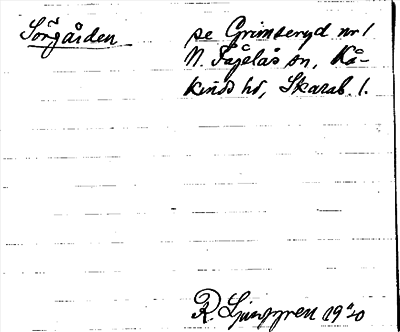 Sörgården
se Grimseryd nr 1
N. Fågelås sn, Kå-
kinds hd, Skarab. l.
R. Ljunggren 1920